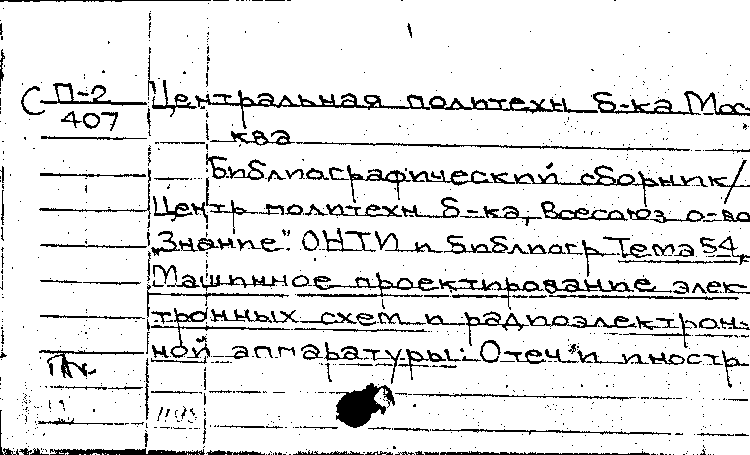 С П-2
407
Центральная политехн б-ка Мос-
ква
Библиографический сборник/
Центр политехн б-ка, Всесоюз о-во
„Знание". ОНТИ и библиогр Тема 54,
Машинное проектирование элек-
тронных схем и радиоэлектрон-
ной аппаратуры: Отеч и иностр